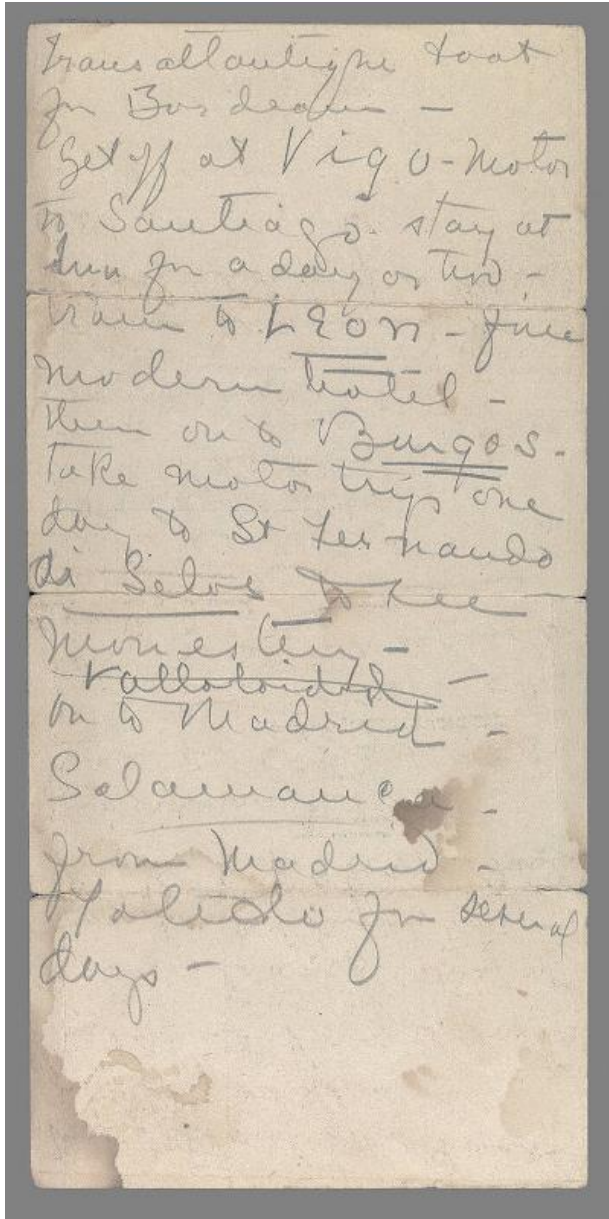 Transatlantique boat
for Bordeaux —
Get off at Vigo - Motor
to Santiago. stay at
Inn for a day or two -
train to LEON - fine
modern hotel -
then on to Burgos -
Take motor trip one
day to St Fernando
di Selos to see
monestery -
Valloloidid -
on to Madrid -
Salamanca -
from Madrid -
Toledo for several
days -